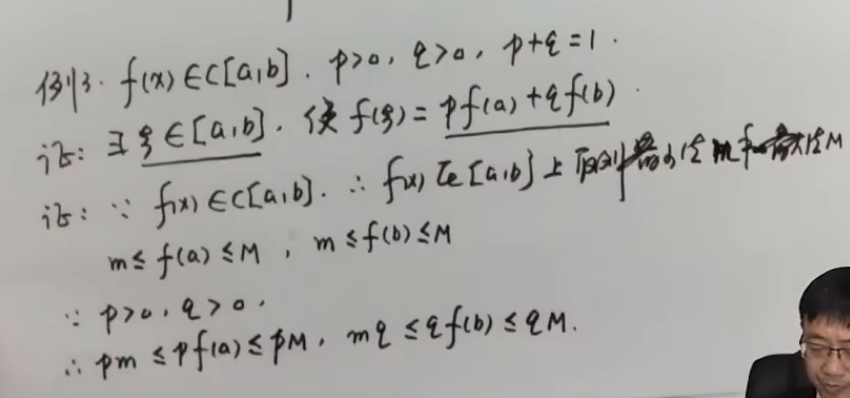 例3. f(x)∈C[a,b]. p>0, q>0, p+q=1.
证: ∃ξ∈[a,b]. 使 f(ξ)=pf(a)+qf(b).
证: ∵ f(x)∈C[a,b]. ∴ f(x)在[a,b]上取到最小值m和最大值M
m≤f(a)≤M, m≤f(b)≤M
∵ p>0, q>0.
∴ pm≤pf(a)≤pM, mq≤qf(b)≤qM.